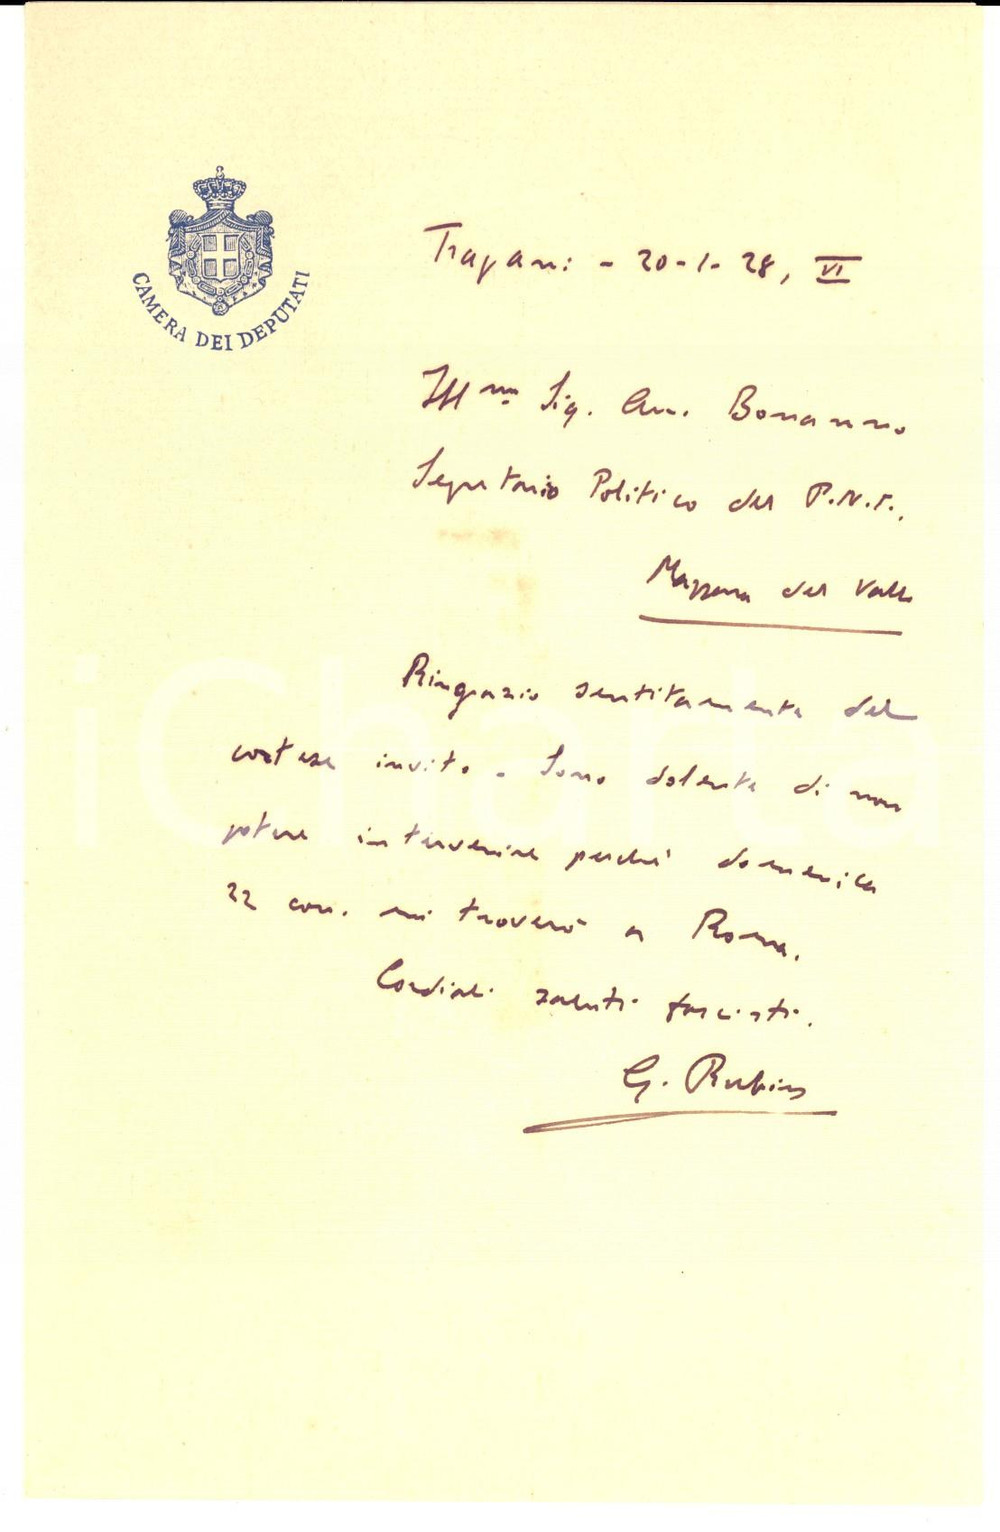 CAMERA DEI DEPUTATI
Trapani - 20-1-28, VI
Ill.mo Sig. Avv. Bonanno
Segretario Politico del P.N.F.
Mazzara del Vallo
Ringrazio sentitamente del
cortese invito. Sono dolente di non
potere intervenire perché domenica
22 corr. mi troverò a Roma.
Cordiali saluti fascisti.
G. Rubino
iCharta